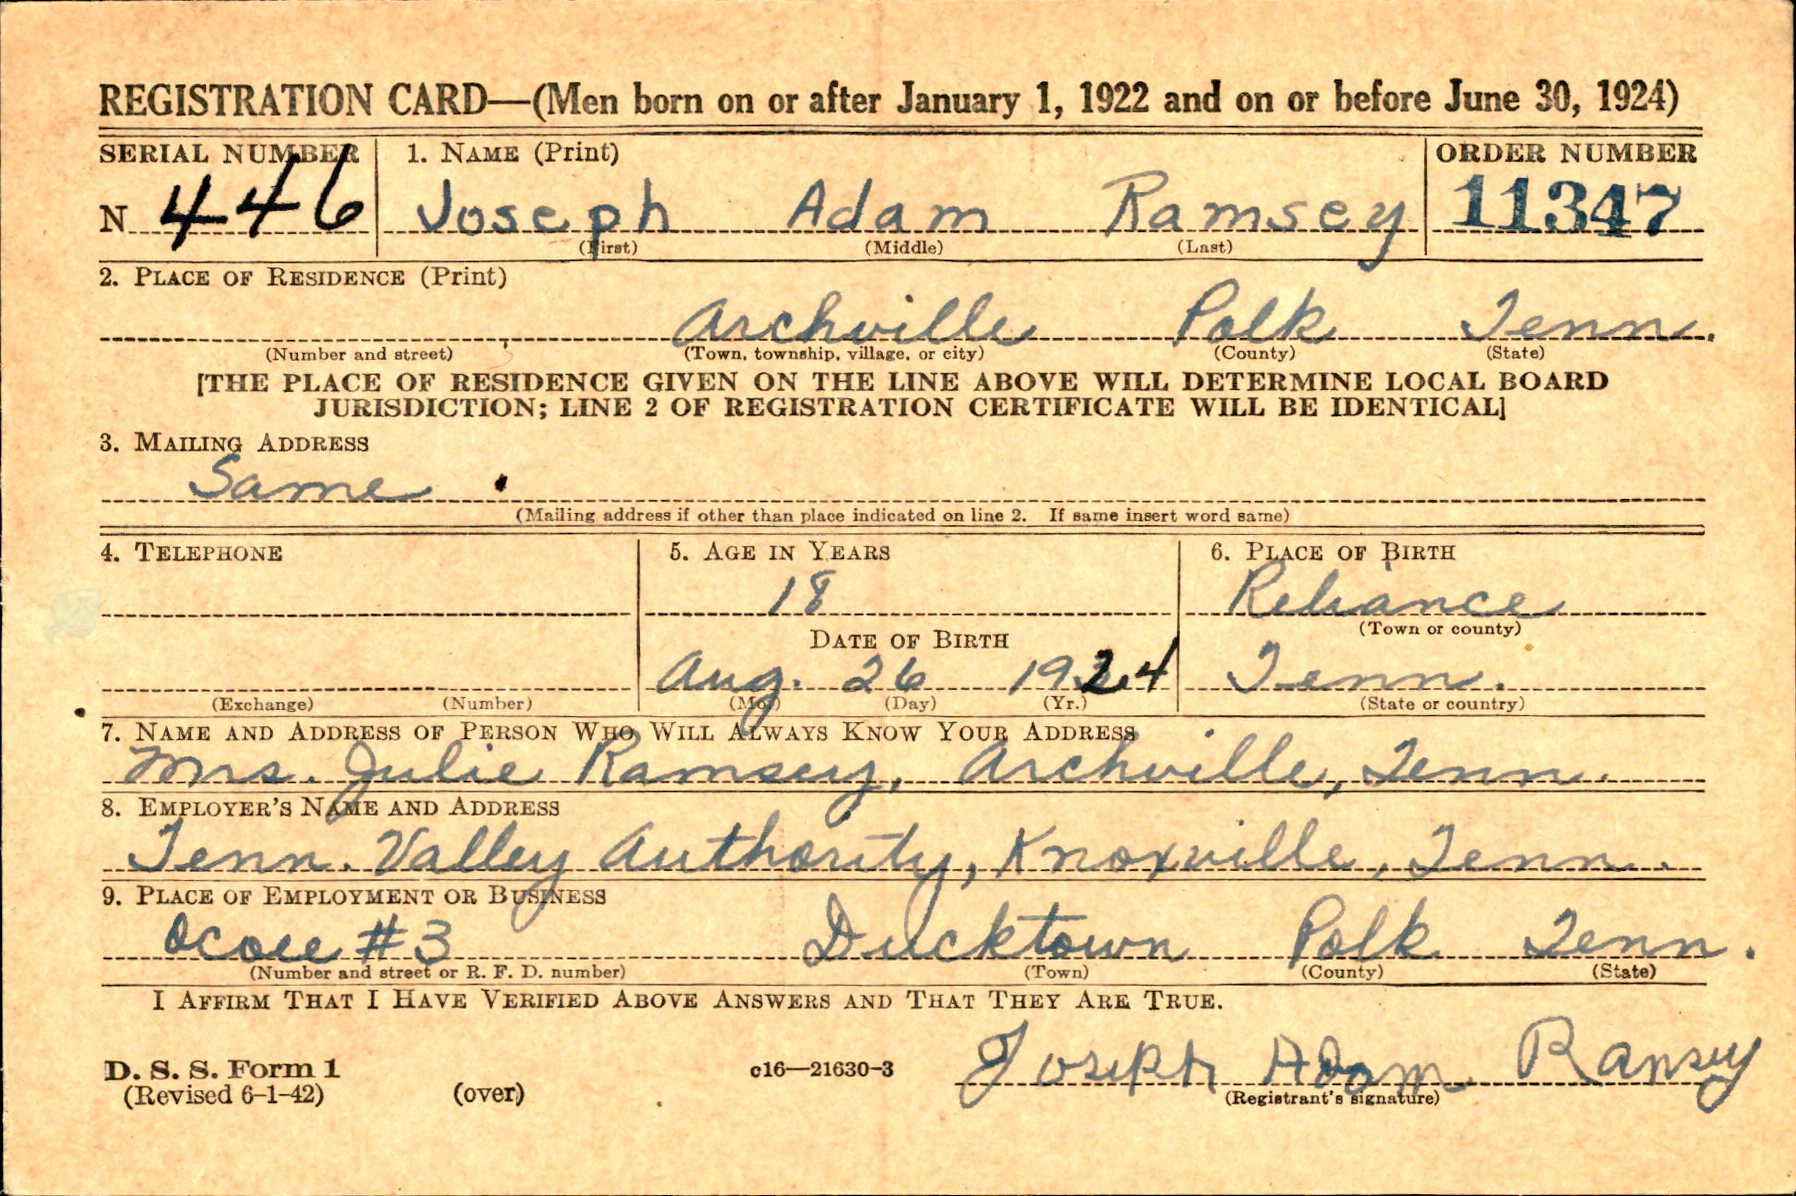 REGISTRATION CARD—(Men born on or after January 1, 1922 and on or before June 30, 1924)
SERIAL NUMBER 1. NAME (Print) ORDER NUMBER
N 446 Joseph Adam Ramsey 11347
(First) (Middle) (Last)
2. PLACE OF RESIDENCE (Print)
Archville Polk Tenn.
(Number and street) (Town, township, village, or city) (County) (State)
[THE PLACE OF RESIDENCE GIVEN ON THE LINE ABOVE WILL DETERMINE LOCAL BOARD
JURISDICTION; LINE 2 OF REGISTRATION CERTIFICATE WILL BE IDENTICAL]
3. MAILING ADDRESS
Same
(Mailing address if other than place indicated on line 2. If same insert word same)
4. TELEPHONE 5. AGE IN YEARS 6. PLACE OF BIRTH
18 Reliance
(Town or county)
DATE OF BIRTH
Aug. 26 1924 Tenn.
(Exchange) (Number) (Mo.) (Day) (Yr.) (State or country)
7. NAME AND ADDRESS OF PERSON WHO WILL ALWAYS KNOW YOUR ADDRESS
Mrs. Julie Ramsey, Archville, Tenn.
8. EMPLOYER'S NAME AND ADDRESS
Tenn. Valley Authority, Knoxville, Tenn.
9. PLACE OF EMPLOYMENT OR BUSINESS
Ocoee #3 Ducktown Polk Tenn.
(Number and street or R. F. D. number) (Town) (County) (State)
I AFFIRM THAT I HAVE VERIFIED ABOVE ANSWERS AND THAT THEY ARE TRUE.
D. S. S. Form 1 c16—21630-3 Joseph Adam Ramsy
(Revised 6-1-42) (over) (Registrant's signature)